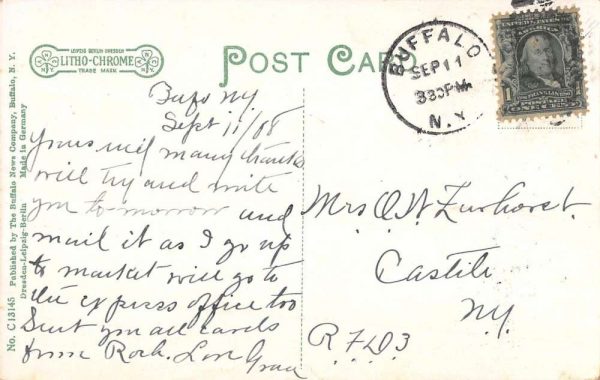 No. C13145 Published by The Buffalo News Company, Buffalo, N. Y.
Dresden-Leipzig-Berlin Made in Germany
LEIPZIG BERLIN DRESDEN
LITHO-CHROME
TRADE MARK
POST CARD
BUFFALO
SEP 11
330PM
N.Y.
UNITED STATES OF AMERICA
FRANKLIN
1
POSTAGE
ONE CENT
Bufo NY
Sept 11/08
Yours with many thanks
will try and write
you tomorrow and
mail it as I go up
to market will go to
the express office too
Sent you all cards
from Roch. Love Grace
Mrs O. W.
Castile
NY.
R.F.D3